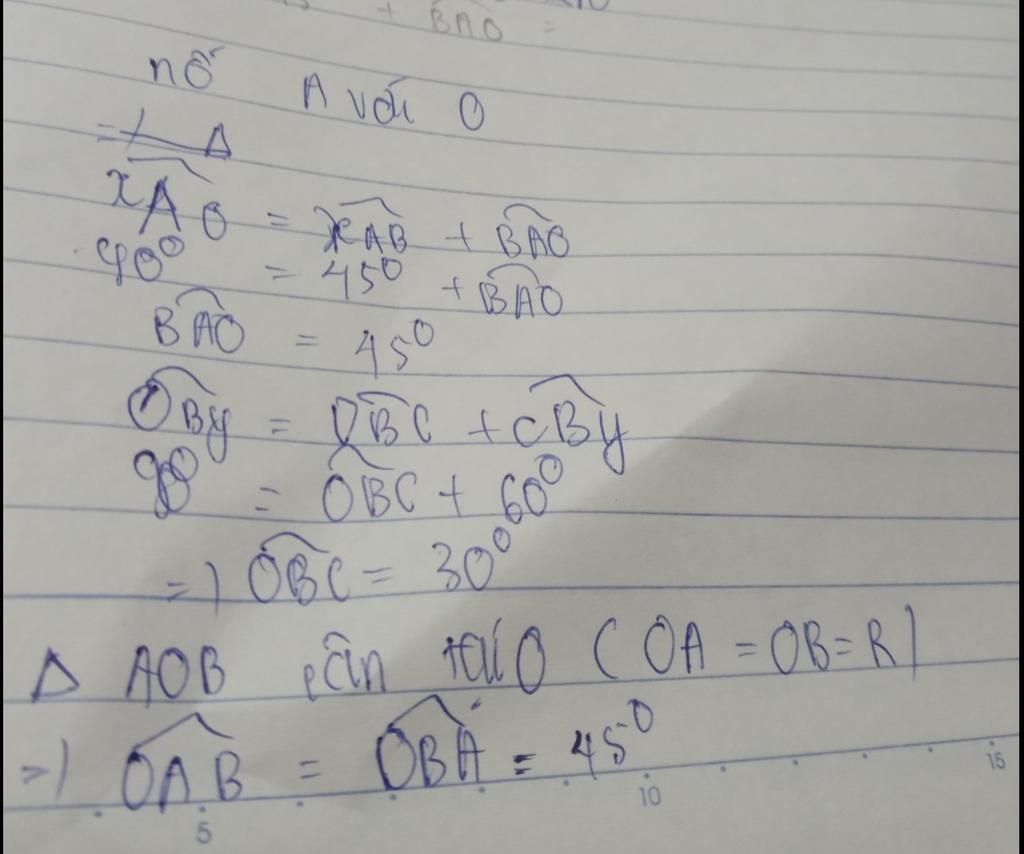 + BAO =
nố A với O
=) Δ
xAO = xAB + BAO
90⁰ = 45⁰ + BAO
BAO = 45⁰
OBy = OBC + CBy
90⁰ = OBC + 60⁰
=) OBC = 30⁰
Δ AOB cân tại O ( OA = OB = R )
=) OAB = OBA = 45⁰
5 10 15